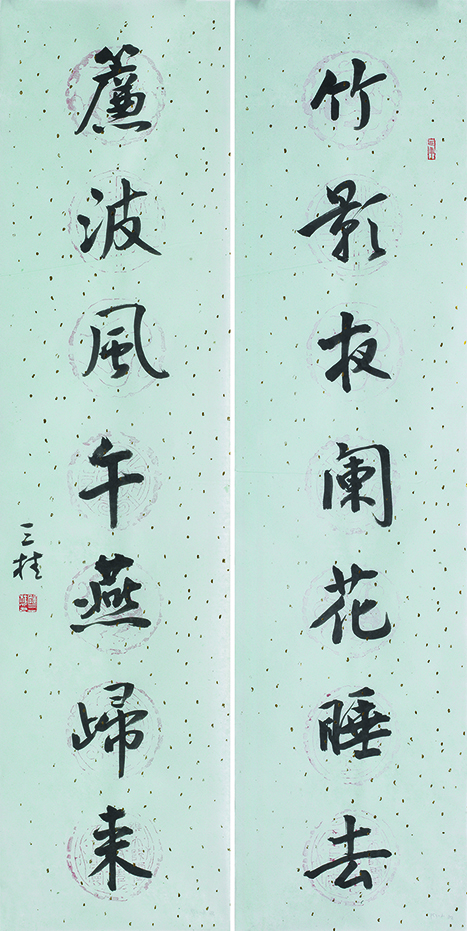 竹影夜阑花睡去
簾波風午燕歸来
三桂